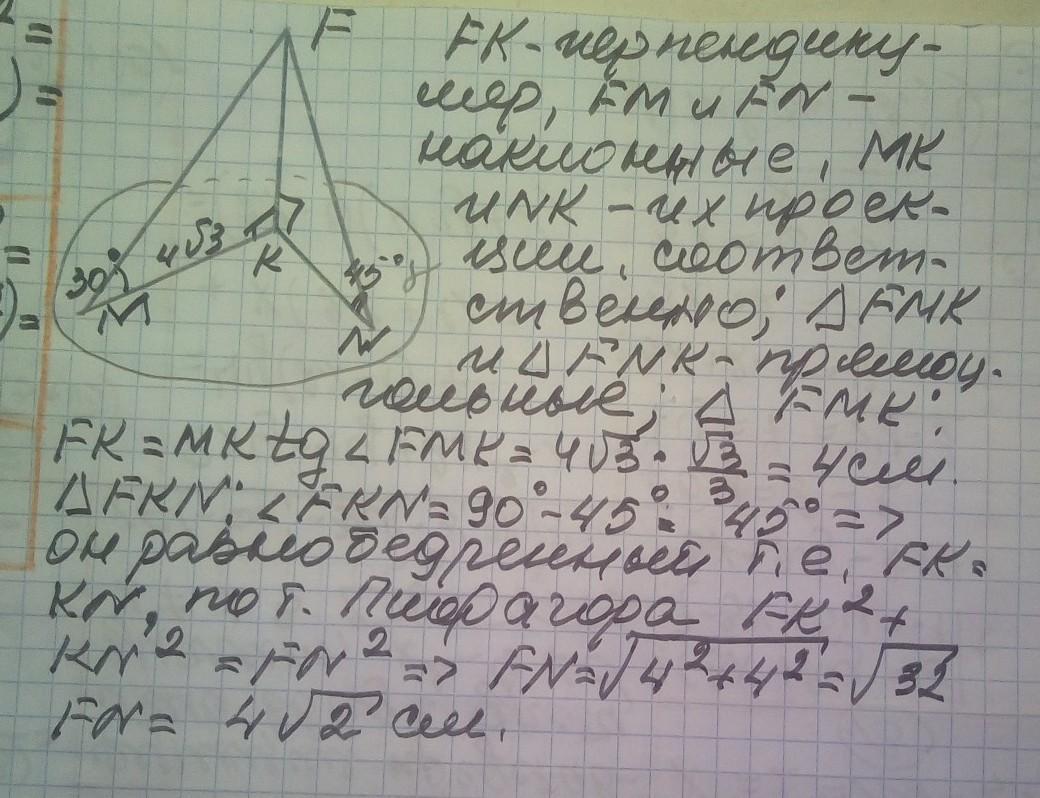 2 =
) =
=
) =
F
30°
4√3
K
45°
M
N
FK - перпендику-
ляр, FM и FN -
наклонные, MK
и NK - их проек-
ции, соответ-
ственно; △ FMK
и △ FNK - прямоу-
гольные; △ FMK:
FK = MK tg ∠ FMK = 4√3 · √3/3 = 4 см.
△ FKN: ∠ FKN = 90° - 45° = 45° =>
он равнобедренный т.е. FK =
KN, по т. Пифагора FK² +
KN² = FN² => FN = √4² + 4² = √32
FN = 4√2 см.